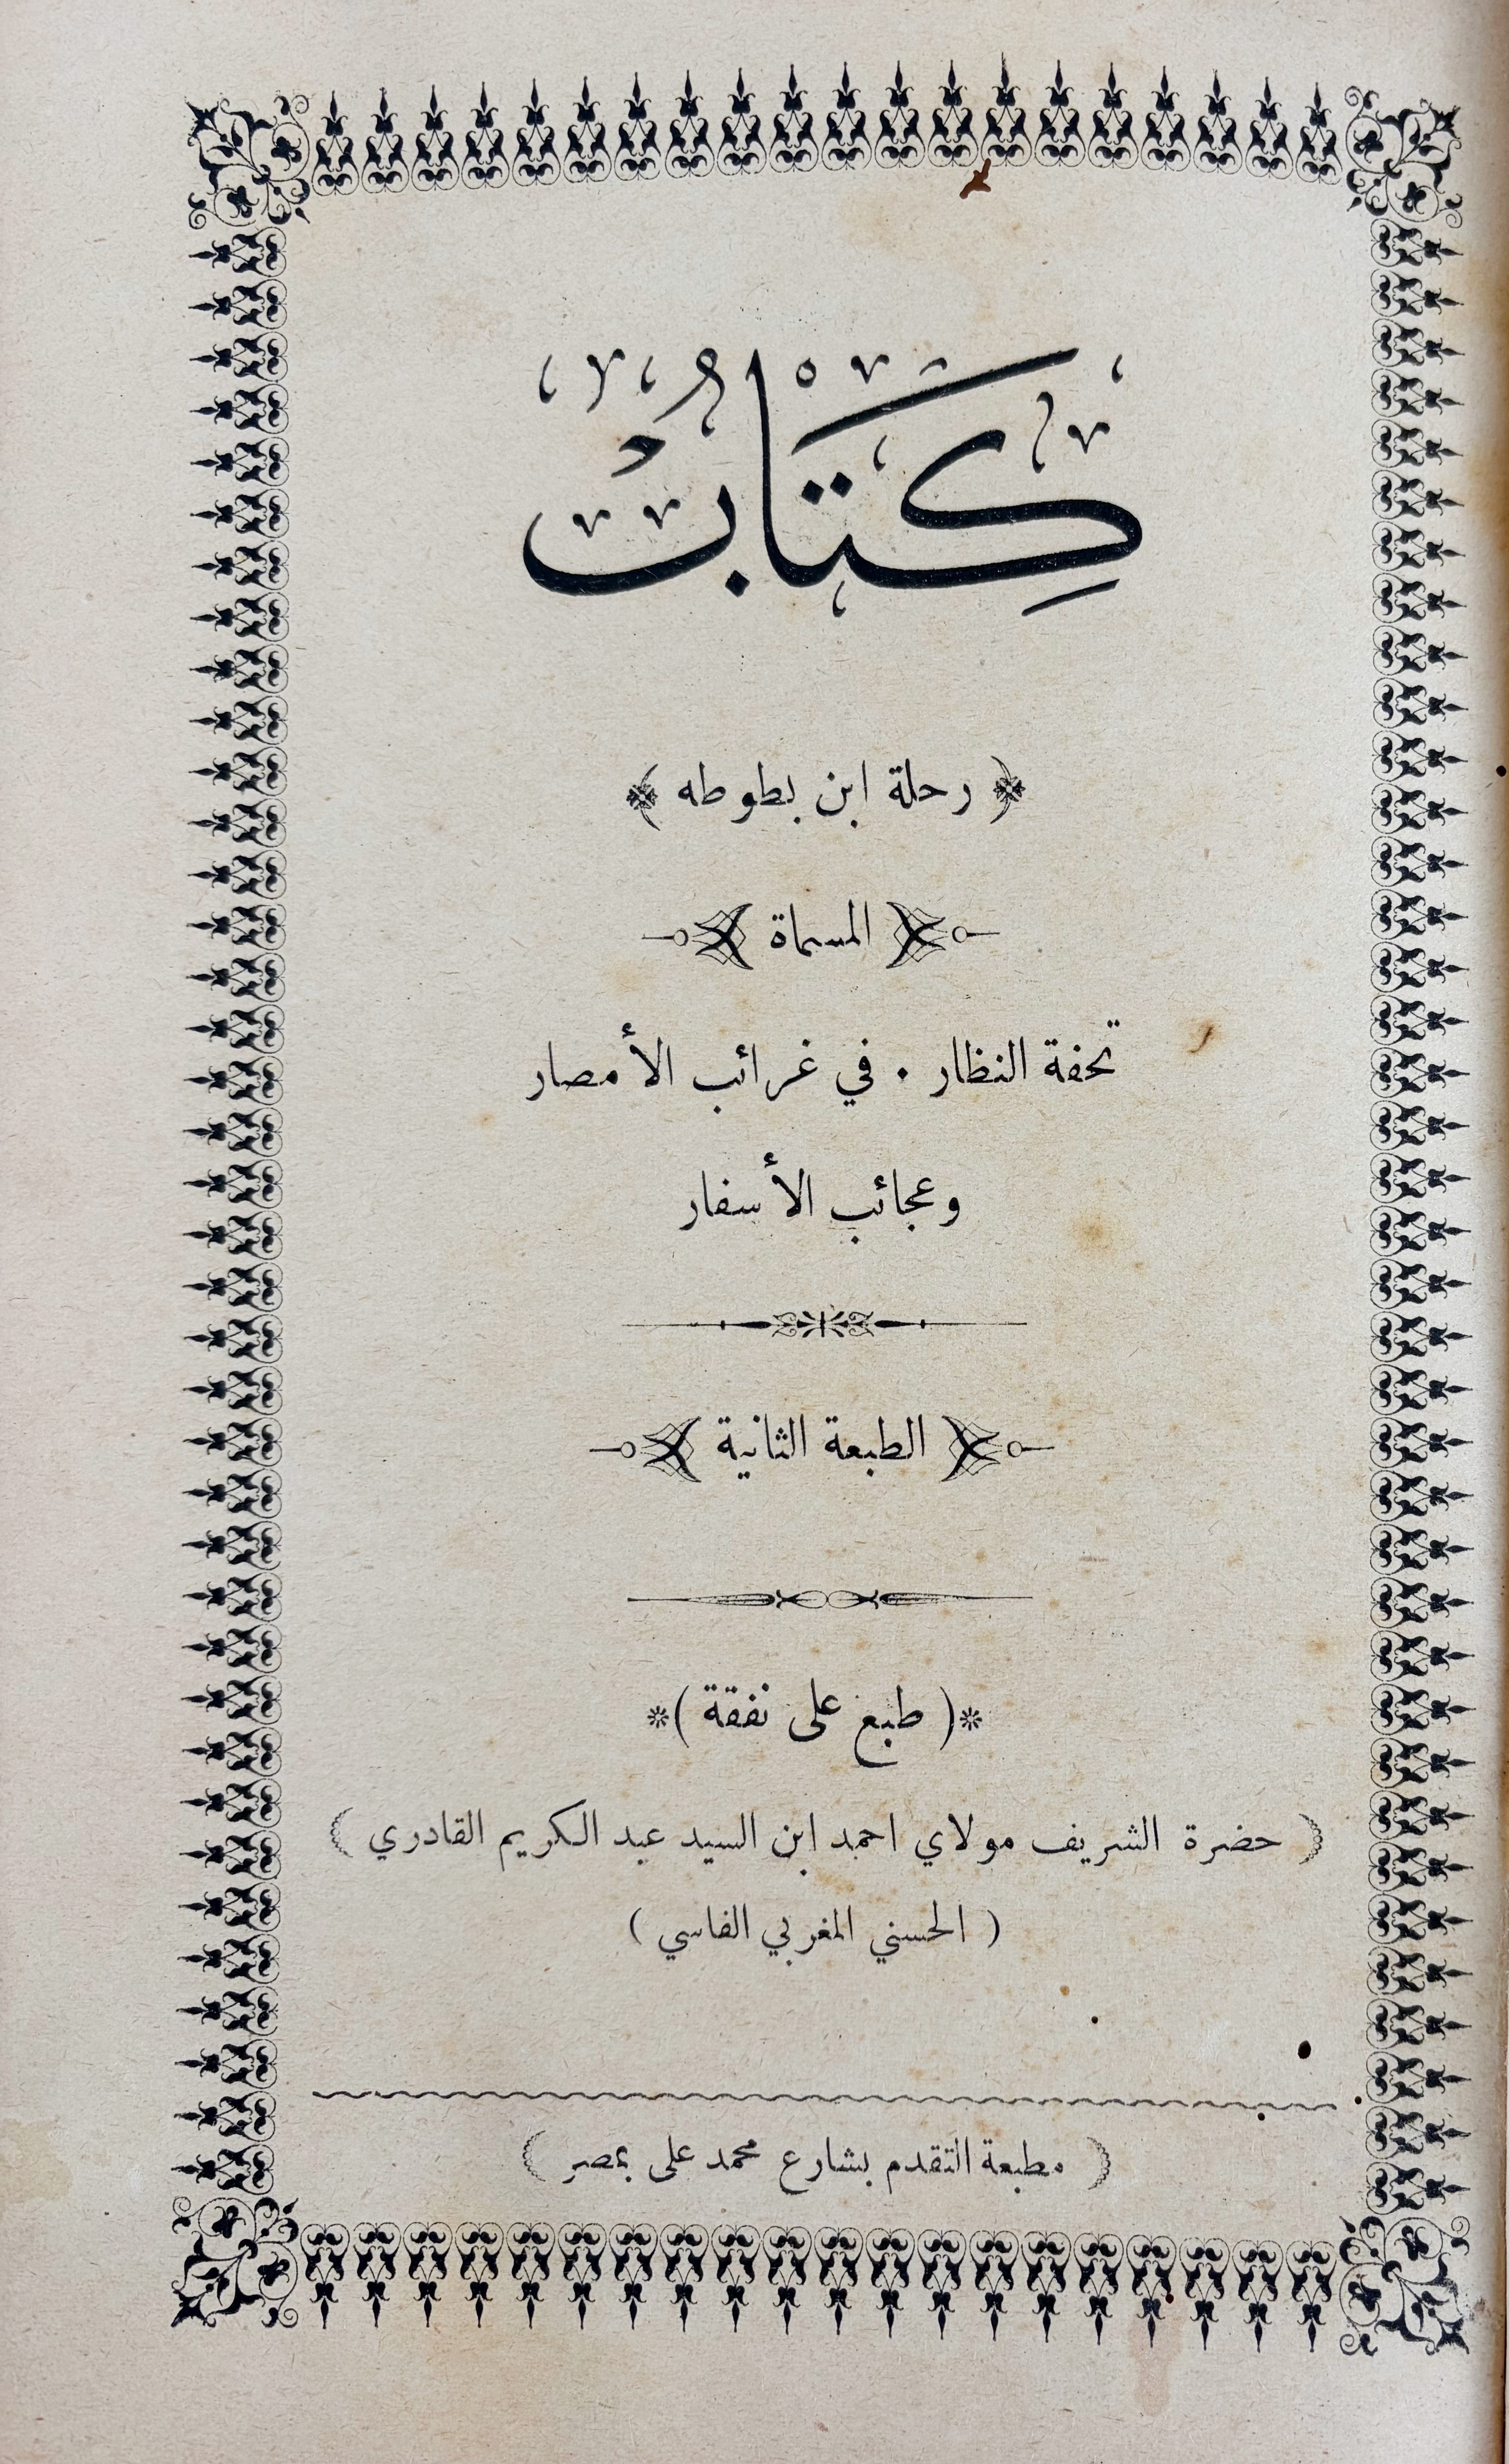 كِتَابُ
﴿ رحلة ابن بطوطه ﴾
المسماة
تحفة النظار . في غرائب الأمصار
وعجائب الأسفار
الطبعة الثانية
*( طبع على نفقة )*
( حضرة الشريف مولاي احمد ابن السيد عبد الكريم القادري )
( الحسني المغربي الفاسي )
( مطبعة التقدم بشارع محمد على بمصر )